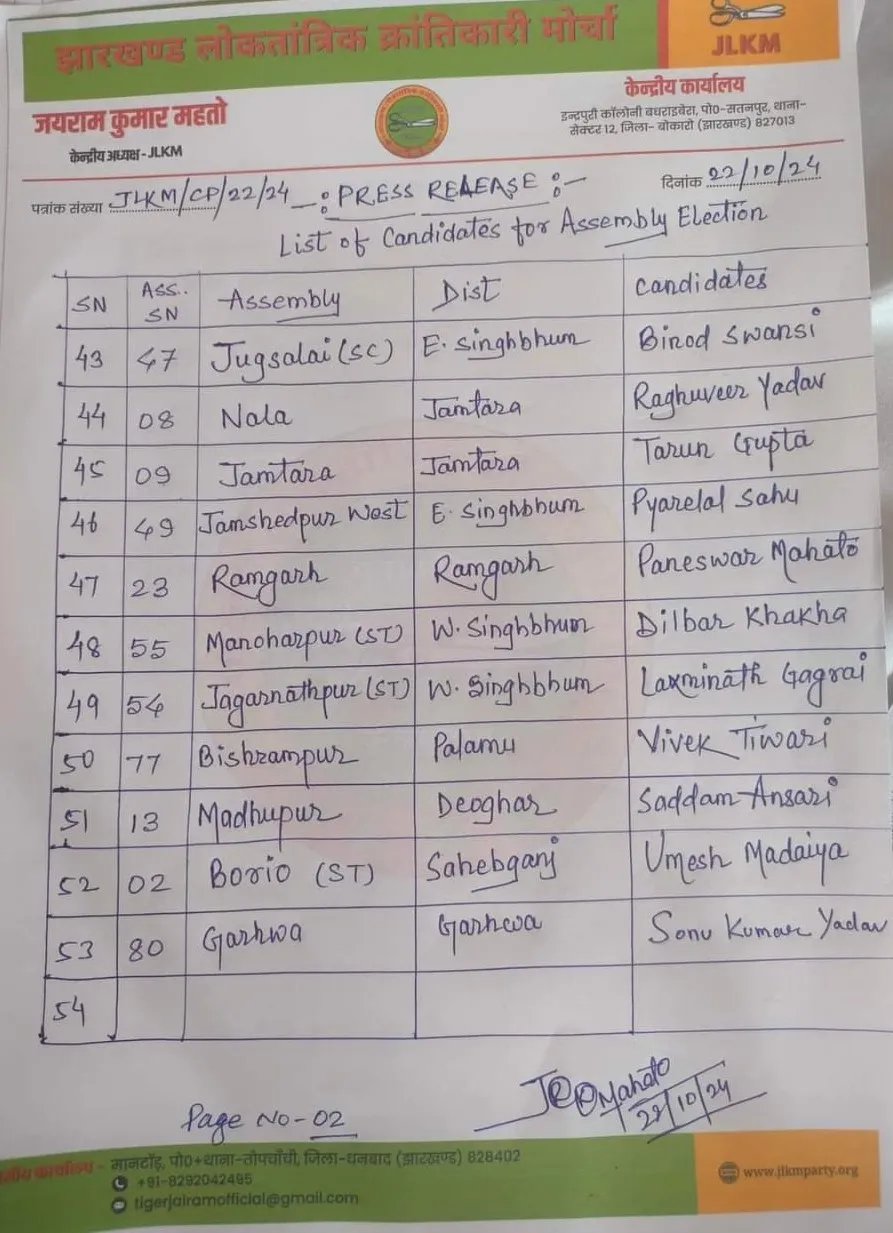 झारखण्ड लोकतांत्रिक क्रांतिकारी मोर्चा
JLKM
जयराम कुमार महतो
केन्द्रीय अध्यक्ष - JLKM
केन्द्रीय कार्यालय
इन्द्रपुरी कॉलोनी बधराइबेरा, पो०-सतनपुर, थाना-
सेक्टर 12, जिला- बोकारो (झारखण्ड) 827013
पत्रांक संख्या JLKM/CP/22/24 -: PRESS RELEASE :- दिनांक 22/10/24
List of Candidates for Assembly Election
SN Ass.. SN Assembly Dist Candidates
43 47 Jugsalai (SC) E. Singhbhum Binod Swansi
44 08 Nala Jamtara Raghuveer Yadav
45 09 Jamtara Jamtara Tarun Gupta
46 49 Jamshedpur West E. Singhbhum Pyarelal Sahu
47 23 Ramgarh Ramgarh Paneswar Mahato
48 55 Manoharpur (ST) W. Singhbhum Dilbar Khakha
49 54 Jagarnathpur (ST) W. Singhbhum Laxminath Gagrai
50 77 Bishrampur Palamu Vivek Tiwari
51 13 Madhupur Deoghar Saddam Ansari
52 02 Borio (ST) Sahebganj Umesh Madaiya
53 80 Garhwa Garhwa Sonu Kumar Yadav
54
Mahato
22/10/24
Page No-02
कार्यालय - मानटाँड़, पो०+थाना-तोपचाँची, जिला-धनबाद (झारखण्ड) 828402
+91-8292042495
tigerjairamofficial@gmail.com
www.jlkmparty.org